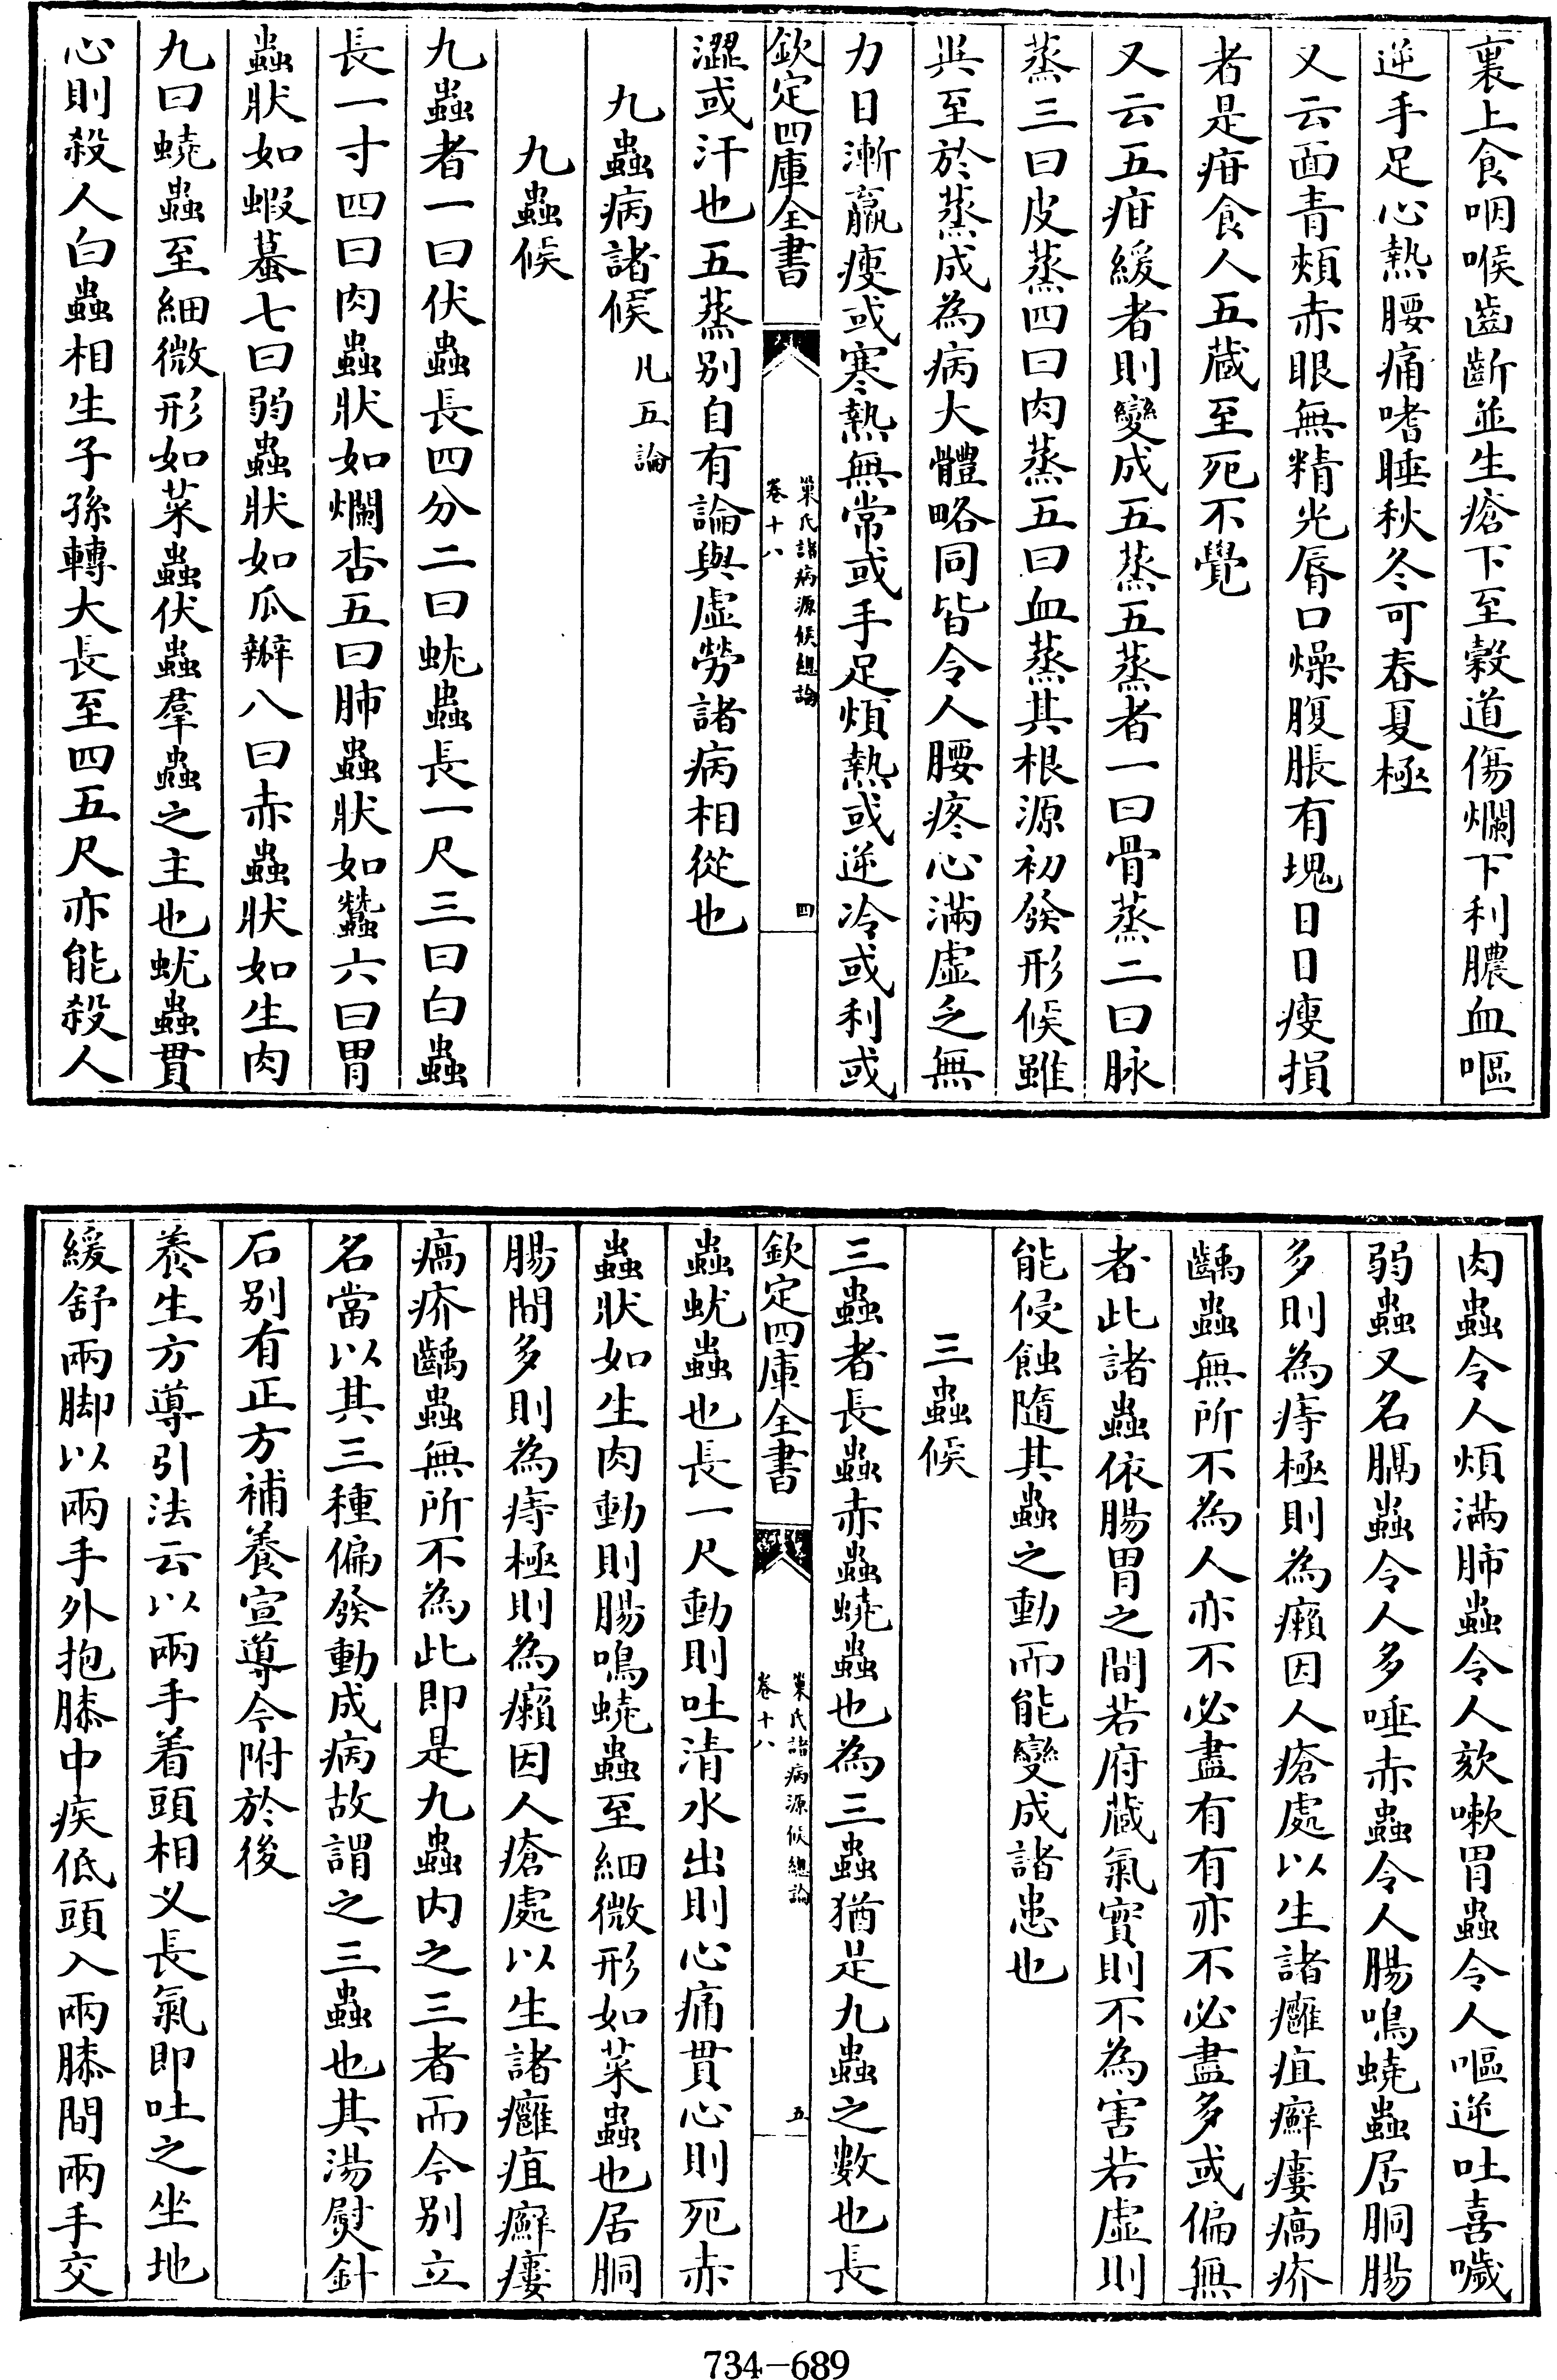 裏上食咽喉齒齗並生瘡下至穀道傷爛下利膿血嘔
逆手足心熱腰痛嗜睡秋冬可春夏極
又云面青頰赤眼無精光脣口燥腹脹有塊日日瘦損
者是疳食人五藏至死不覺
又云五疳緩者則變成五蒸五蒸者一曰骨蒸二曰脉
蒸三曰皮蒸四曰肉蒸五曰血蒸其根源初發形候雖
異至於蒸成為病大體略同皆令人腰疼心滿虛乏無
力日漸羸瘦或寒熱無常或手足煩熱或逆冷或利或
欽定四庫全書
巢氏諸病源候總論
卷十八
四
澀或汗也五蒸别自有論與虛勞諸病相從也
九蟲病諸候凡五論
九蟲候
九蟲者一曰伏蟲長四分二曰蚘蟲長一尺三曰白蟲
長一寸四曰肉蟲狀如爛杏五曰肺蟲狀如蠶六曰胃
蟲狀如蝦蟇七曰弱蟲狀如瓜瓣八曰赤蟲狀如生肉
九曰蟯蟲至細微形如菜蟲伏蟲羣蟲之主也蚘蟲貫
心則殺人白蟲相生子孫轉大長至四五尺亦能殺人
肉蟲令人煩滿肺蟲令人欬嗽胃蟲令人嘔逆吐喜噦
弱蟲又名膈蟲令人多唾赤蟲令人腸鳴蟯蟲居胴腸
多則為痔極則為癩因人瘡處以生諸癰疽癬瘻瘑疥
齲蟲無所不為人亦不必盡有有亦不必盡多或偏無
者此諸蟲依腸胃之間若府藏氣實則不為害若虛則
能侵蝕隨其蟲之動而能變成諸患也
三蟲候
三蟲者長蟲赤蟲蟯蟲也為三蟲猶是九蟲之數也長
欽定四庫全書
巢氏諸病源候總論
卷十八
五
蟲蚘蟲也長一尺動則吐清水出則心痛貫心則死赤
蟲狀如生肉動則腸鳴蟯蟲至細微形如菜蟲也居胴
腸間多則為痔極則為癩因人瘡處以生諸癰疽癬瘻
瘑疥齲蟲無所不為此即是九蟲内之三者而今别立
名當以其三種偏發動成病故謂之三蟲也其湯熨針
石别有正方補養宣導今附於後
養生方導引法云以兩手着頭相义長氣即吐之坐地
緩舒兩脚以兩手外抱膝中疾低頭入兩膝間兩手交
734-689